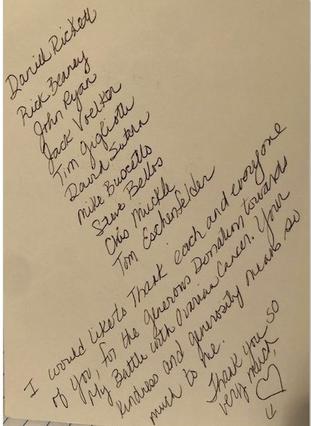 Daniel Rickett
Rick Beaney
John Ryan
Jack Voelker
Tim Gigliotti
David Sutera
Mike Buscetto
Steve Bellos
Chris Muckle
Tom Eschenfelder
I would like to Thank each and everyone
of you, for the generous Donation towards
My Battle with Ovarian Cancer. Your
kindness and generosity means so
much to me.
Thank you so
very much,